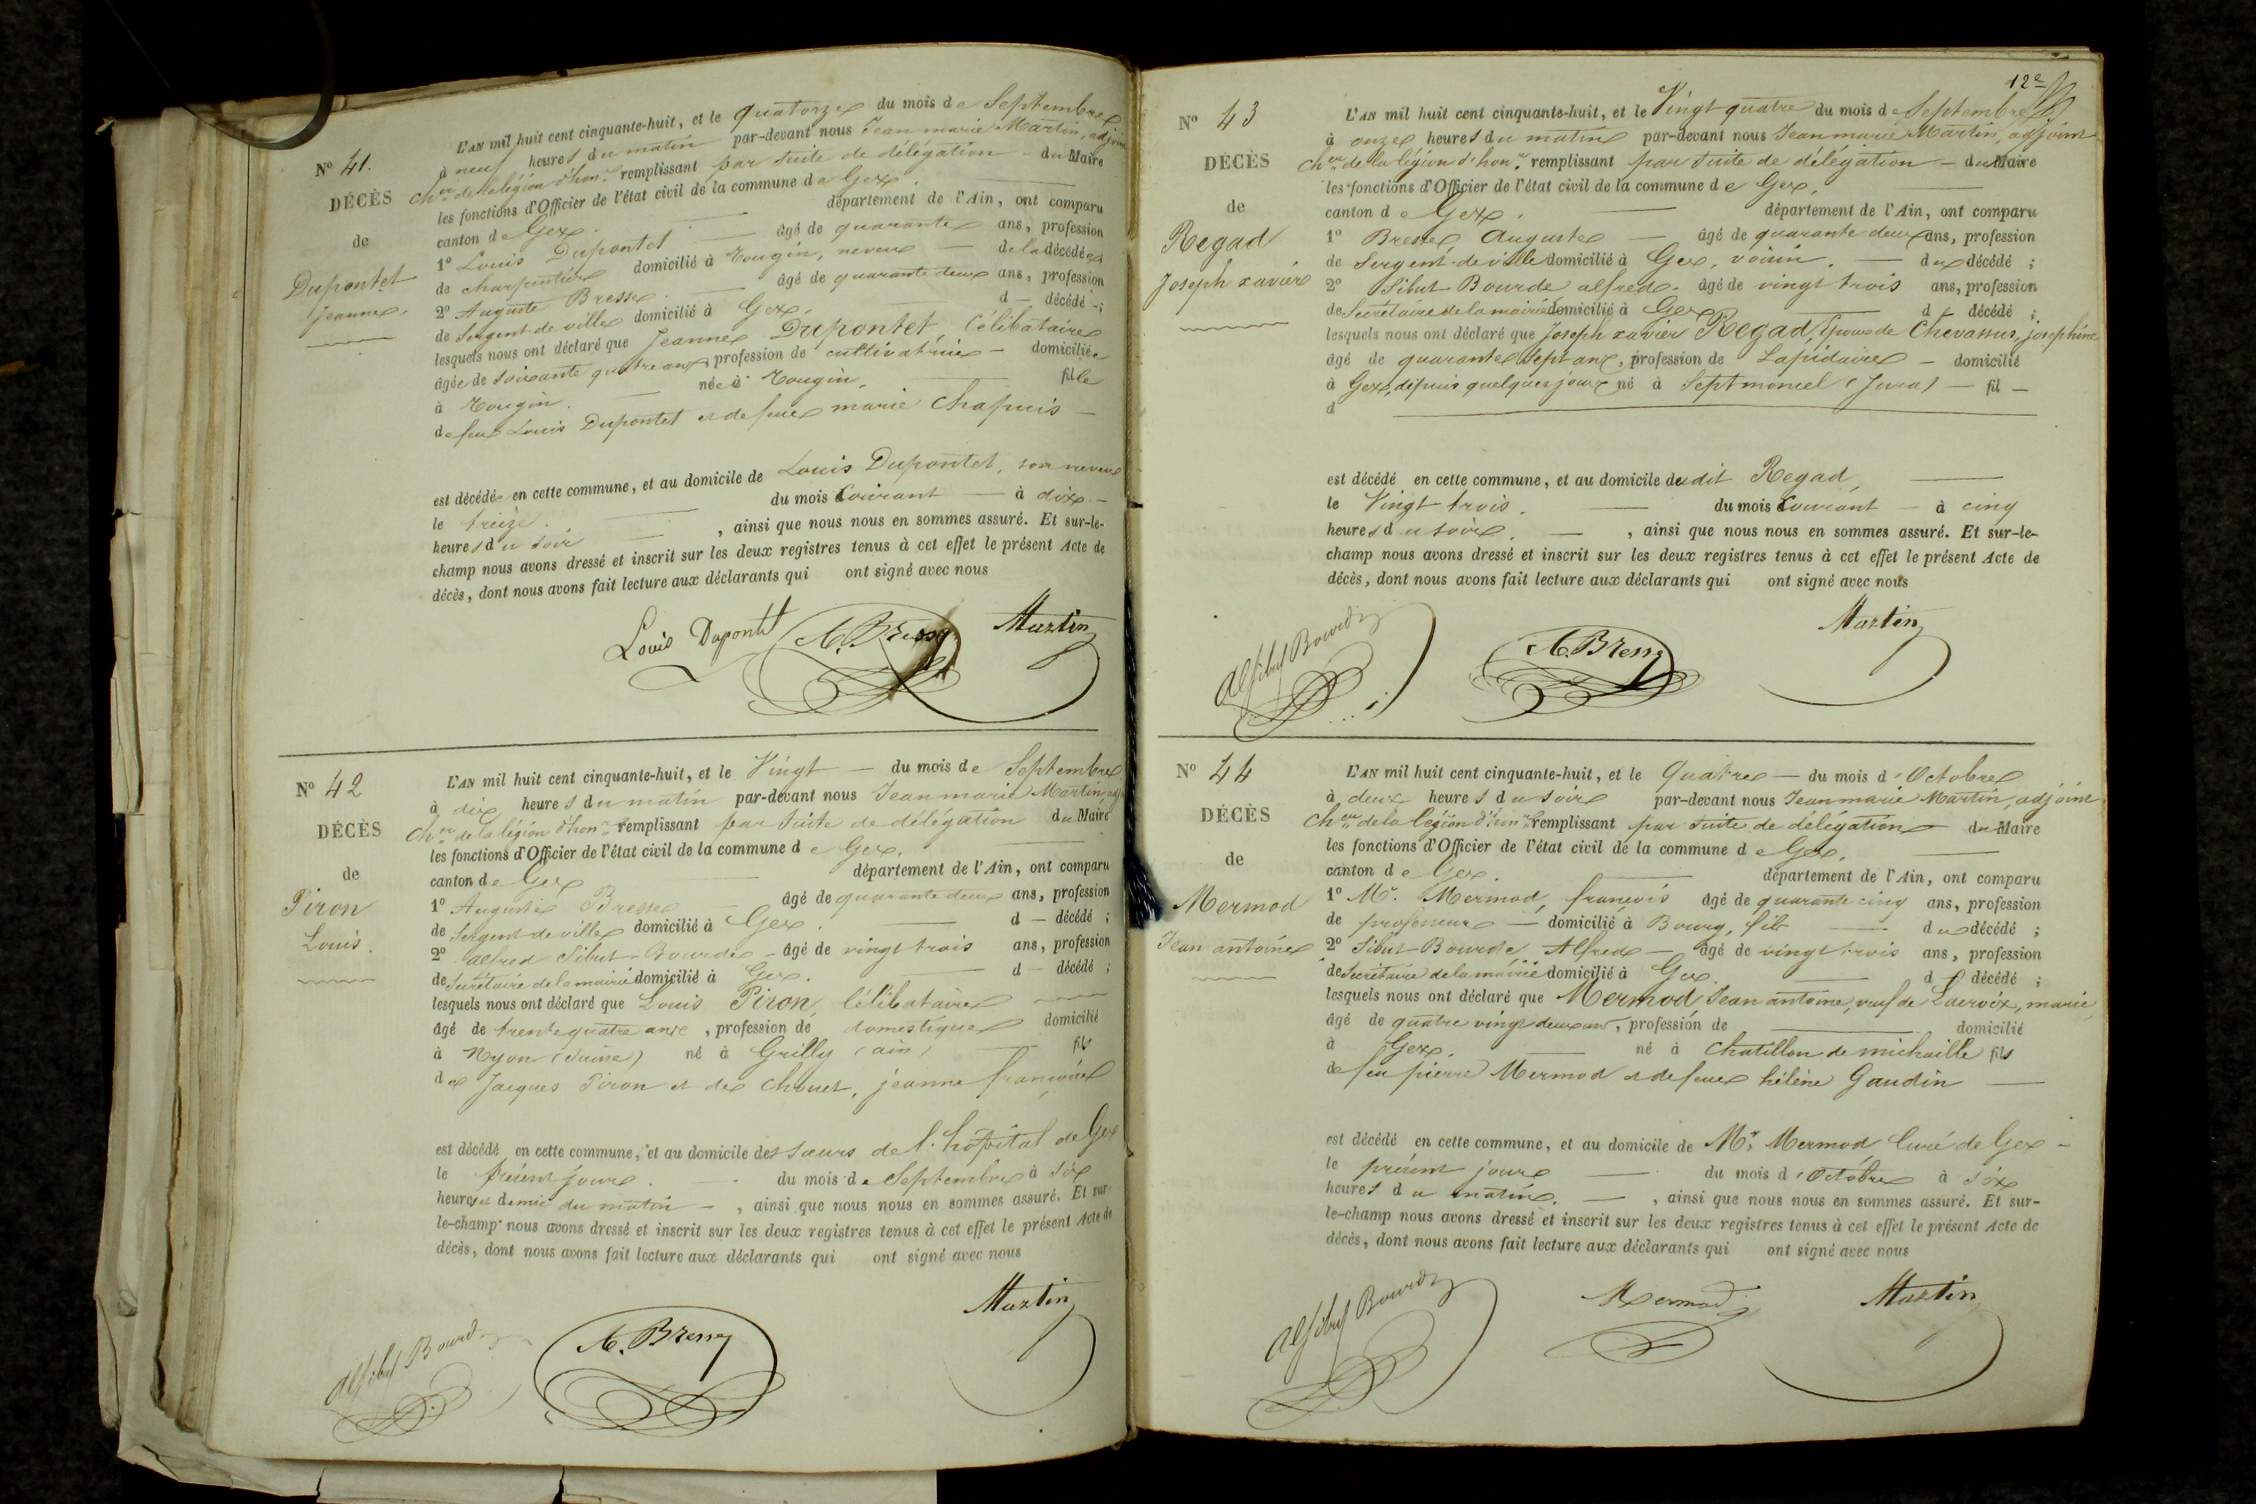 N° 41.
DÉCÈS
de
Dupontet
jeanne.
L'AN mil huit cent cinquante-huit, et le quatorze du mois de Septembre
à neuf heures du matin par-devant nous Jean marie Martin, adjoint
Cher de la légion d'honr remplissant par suite de délégation - du Maire
les fonctions d'Officier de l'état civil de la commune de Gex.
canton de Gex. département de l'Ain, ont comparu
1° Louis Dupontet âgé de quarante ans, profession
de charpentier domicilié à Tougin, neveu - de la décédée
2° Auguste Bresse. âgé de quarante deux ans, profession
de Sergent de ville domicilié à Gex. d - décédé -;
lesquels nous ont déclaré que Jeanne Dupontet, Célibataire
âgée de soixante quatre ans, profession de cultivatrice - domiciliée
à Tougin. née à Tougin. fille
de feu Louis Dupontet et de feue marie Chapuis -
est décédée en cette commune, et au domicile de Louis Dupontet, son neveu
le treize. du mois Courant - à dix -
heures du soir , ainsi que nous nous en sommes assuré. Et sur-le-
champ nous avons dressé et inscrit sur les deux registres tenus à cet effet le présent Acte de
décès, dont nous avons fait lecture aux déclarants qui ont signé avec nous
Louis Dupontet A. Bresse Martin
N° 42
DÉCÈS
de
Piron
Louis.
L'AN mil huit cent cinquante-huit, et le Vingt - du mois de Septembre
à dix heures du matin par-devant nous Jean marie Martin, adj
Cher de la légion d'honr remplissant par suite de délégation du Maire
les fonctions d'Officier de l'état civil de la commune de Gex.
canton de Gex département de l'Ain, ont comparu
1° Auguste Bresse âgé de quarante deux ans, profession
de Sergent de ville domicilié à Gex. d - décédé ;
2° alfred Sibut-Bourde - âgé de vingt trois ans, profession
de Secrétaire de la mairie domicilié à Gex. d - décédé ;
lesquels nous ont déclaré que Louis Piron, Célibataire
âgé de trente quatre ans, profession de domestique domicilié
à Nyon (Suisse) né à Grilly (ain) fils
de Jacques Piron et de Chouet, jeanne françoise
est décédé en cette commune, et au domicile des sœurs de l'hôpital de Gex
le présent jour. du mois de Septembre à six
heures et demie du matin - , ainsi que nous nous en sommes assuré. Et sur-
le-champ nous avons dressé et inscrit sur les deux registres tenus à cet effet le présent Acte de
décès, dont nous avons fait lecture aux déclarants qui ont signé avec nous
Alf Sibut Bourde A. Bresse Martin
12e
N° 43
DÉCÈS
de
Regad
Joseph xavier
L'AN mil huit cent cinquante-huit, et le Vingt quatre du mois de Septembre
à onze heures du matin par-devant nous Jean marie Martin, adjoint
Cher de la légion d'honr remplissant par suite de délégation - du Maire
les fonctions d'Officier de l'état civil de la commune de Gex.
canton de Gex. département de l'Ain, ont comparu
1° Bresse, Auguste - âgé de quarante deux ans, profession
de Sergent de ville domicilié à Gex, voisin. - du décédé ;
2° Sibut Bourde alfred. âgé de vingt trois ans, profession
de Secrétaire de la mairie domicilié à Gex d décédé ;
lesquels nous ont déclaré que Joseph xavier Regad, Époux de Chevassus, joséphine
âgé de quarante sept ans, profession de Lapidaire - domicilié
à Gex, depuis quelques jours né à Septmoncel (Jura) - fil -
d
est décédé en cette commune, et au domicile dudit Regad
le Vingt trois. du mois Courant - à cinq
heures du soir. - , ainsi que nous nous en sommes assuré. Et sur-le-
champ nous avons dressé et inscrit sur les deux registres tenus à cet effet le présent Acte de
décès, dont nous avons fait lecture aux déclarants qui ont signé avec nous
Alf Sibut Bourde A. Bresse Martin
N° 44
DÉCÈS
de
Mermod
Jean antoine
L'AN mil huit cent cinquante-huit, et le Quatre - du mois d'Octobre
à deux heures du soir par-devant nous Jean marie Martin, adjoint
Cher de la légion d'honr remplissant par suite de délégation - du Maire
les fonctions d'Officier de l'état civil de la commune de Gex.
canton de Gex. département de l'Ain, ont comparu
1° Mr. Mermod, françois âgé de quarante cinq ans, profession
de professeur - domicilié à Bourg, fils - du décédé ;
2° Sibut-Bourde, Alfred - âgé de vingt trois ans, profession
de Secrétaire de la mairie domicilié à Gex. d décédé ;
lesquels nous ont déclaré que Mermod, Jean antoine, veuf de Lacroix, marie,
âgé de quatre vingt deux ans, profession de domicilié
à Gex. né à Chatillon de michaille fils
de feu pierre Mermod et de feue hélène Gaudin -
est décédé en cette commune, et au domicile de Mr. Mermod, Curé de Gex -
le présent jour du mois d'Octobre à six
heures du matin. - , ainsi que nous nous en sommes assuré. Et sur-
le-champ nous avons dressé et inscrit sur les deux registres tenus à cet effet le présent Acte de
décès, dont nous avons fait lecture aux déclarants qui ont signé avec nous
Alf Sibut Bourde Mermod Martin